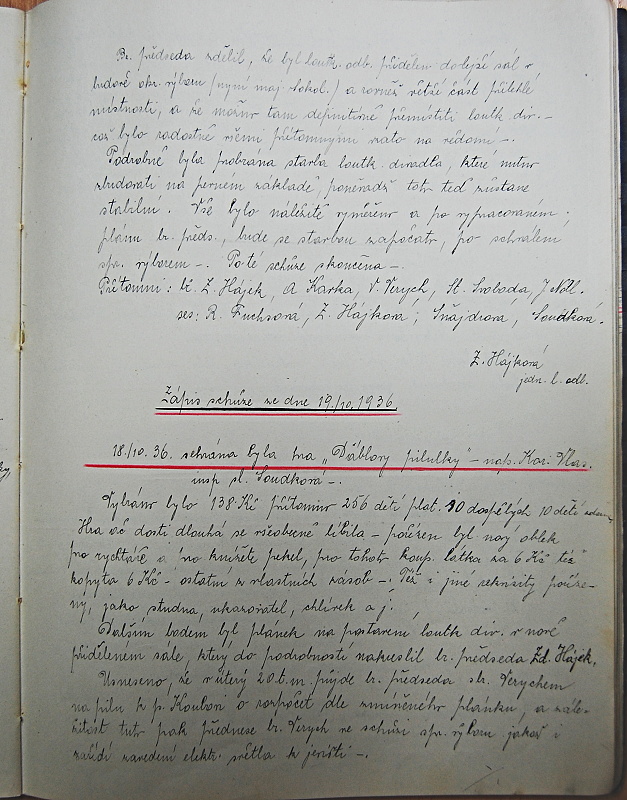 Br. předseda sdělil, že byl loutk. odb. přidělen dolejší sál v
budově okr. výboru (nyní maj. Sokol.) a rovněž větší část přilehlé
místnosti, a že možno tam definitivně přemístiti loutk. div. –
což bylo radostně všemi přítomnými vzato na vědomí –.
Podrobně byla probrána stavba loutk. divadla, které nutno
zbudovati na pevném základě, poněvadž toto teď zůstane
stabilní. Vše bylo náležitě vyměřeno a po vypracovaném
plánu br. předs., bude se stavbou započato, po schválení
spr. výborem –. Poté schůze skončena –.
Přítomni: bř. Z. Hájek, A Karka, V. Verych, St. Svoboda, J Nöbl.
ses: R. Fuchsová, Z. Hájková; Šnajdrová, Soudková.
Z. Hájková
jedn. l. odb.
Zápis schůze ze dne 19./10. 1936.
18./10. 36. sehrána byla hra „Ďáblovy pilulky" – naps. Kar. Vlas.
insp sl. Soudková –.
Vybráno bylo 138 Kč přítomno 256 dětí plat. 10 dospělých 10 dětí
Hra ač dosti dlouhá se všeobecně líbila – pořízen byl nový oblek
pro rychtáře a pro knížete pekel, pro tohoto koup. látka za 6 Kč též
kopyta 6 Kč – ostatní z vlastních zásob –. Též i jiné rekvisity poříze-
ny, jako studna, ukazovatel, chlívek a j.
Dalším bodem byl plánek na postavení loutk. div. v nově
přiděleném sále, který do podrobností nakreslil br. předseda Zd. Hájek.
Usneseno, že v úterý 20. t. m. půjde br. předseda s br. Verychem
na pilu k p. Koubovi o rozpočet dle zmíněného plánku, a zále-
žitost tuto pak přednese br. Verych ve schůzi spr. výboru jakož i
zařídí zavedení elektr. světla k jevišti –.